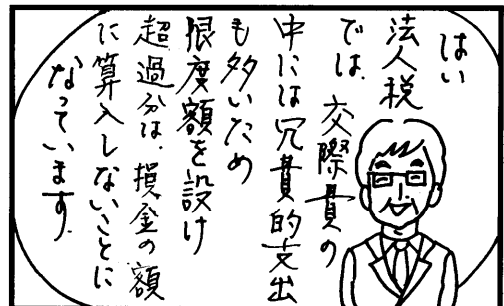 はい
法人税
では、交際費の
中には冗費的支出
も多いため
限度額を設け
超過分は、損金の額
に算入しないことに
なっています。